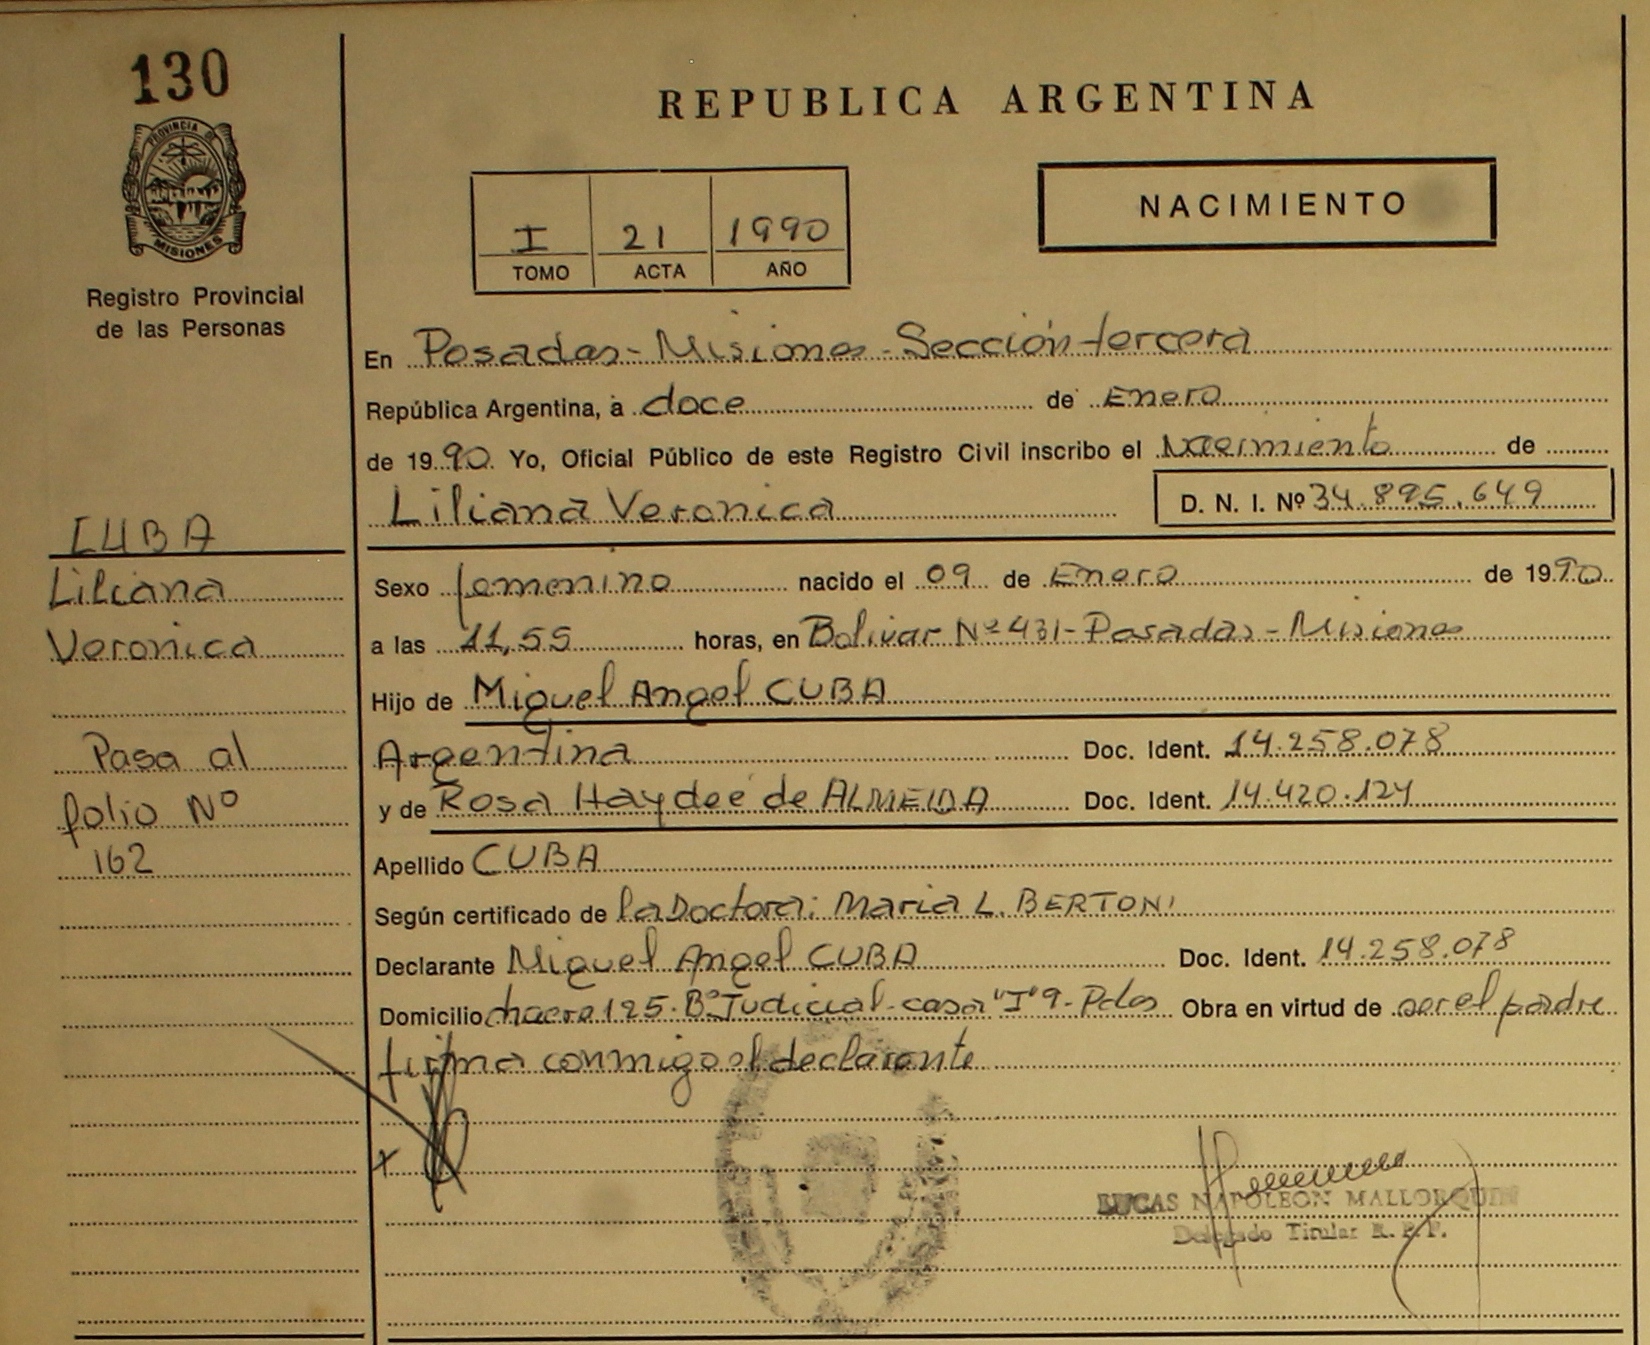 130
PROVINCIA DE
MISIONES
Registro Provincial
de las Personas
CUBA
Liliana
Veronica
Pasa al
folio Nº
162
REPUBLICA ARGENTINA
I 21 1990
TOMO ACTA AÑO
NACIMIENTO
En Posadas - Misiones - Sección tercera
República Argentina, a doce de Enero
de 1990 Yo, Oficial Público de este Registro Civil inscribo el Nacimiento de
Liliana Veronica D. N. I. Nº 34.895.649
Sexo femenino nacido el 09 de Enero de 1990
a las 11,55 horas, en Bolivar Nº 431 - Posadas - Misiones
Hijo de Miguel Angel CUBA
Argentina Doc. Ident. 14.258.078
y de Rosa Haydeé de ALMEIDA Doc. Ident. 14.420.124
Apellido CUBA
Según certificado de la Doctora: Maria L. BERTONI
Declarante Miguel Angel CUBA Doc. Ident. 14.258.078
Domicilio chacra 125 - Bº Judicial - casa "I" 9 - Pdas Obra en virtud de ser el padre
firma conmigo el declarante
LUCAS NAPOLEON MALLORQUIN
Delegado Titular R. P. P.